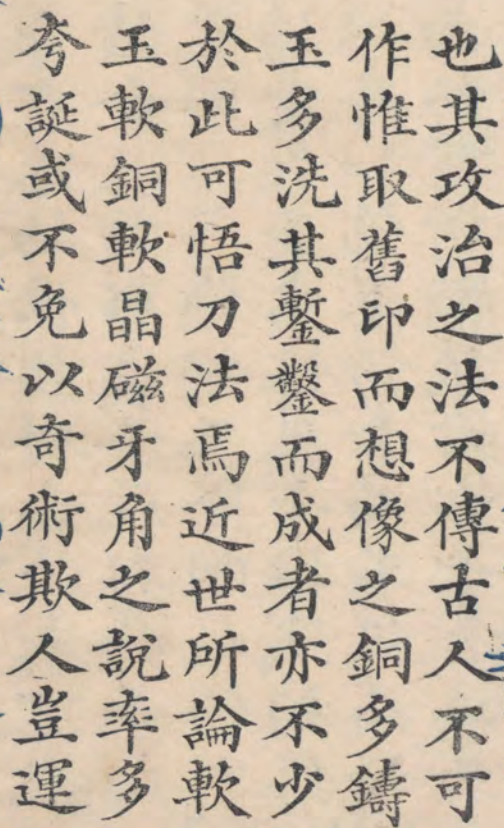 也其攻治之法不傳古人不可
作惟取舊印而想像之銅多鑄
玉多洗其鏨鑿而成者亦不少
於此可悟刀法焉近世所論軟
玉軟銅軟晶磁牙角之說率多
夸誕或不免以奇術欺人豈運